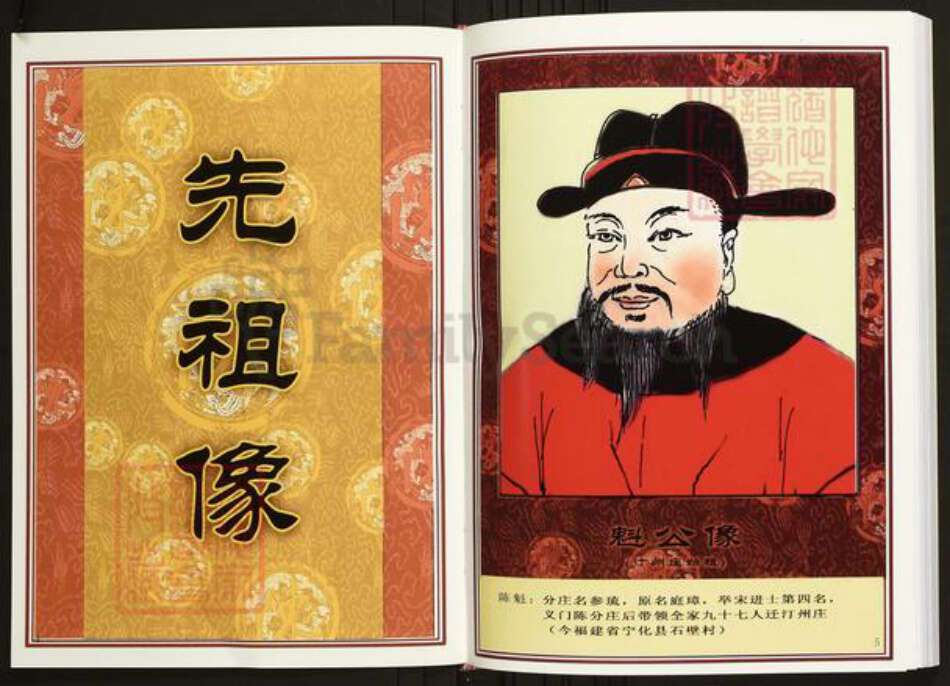 先祖像
魁公像
(汀州庄始祖)
陈魁：分庄名参琉，原名庭璋，卒宋进士第四名，
义门陈分庄后带领全家九十七人迁汀州庄
（今福建省宁化县石壁村）
5
FamilySearch